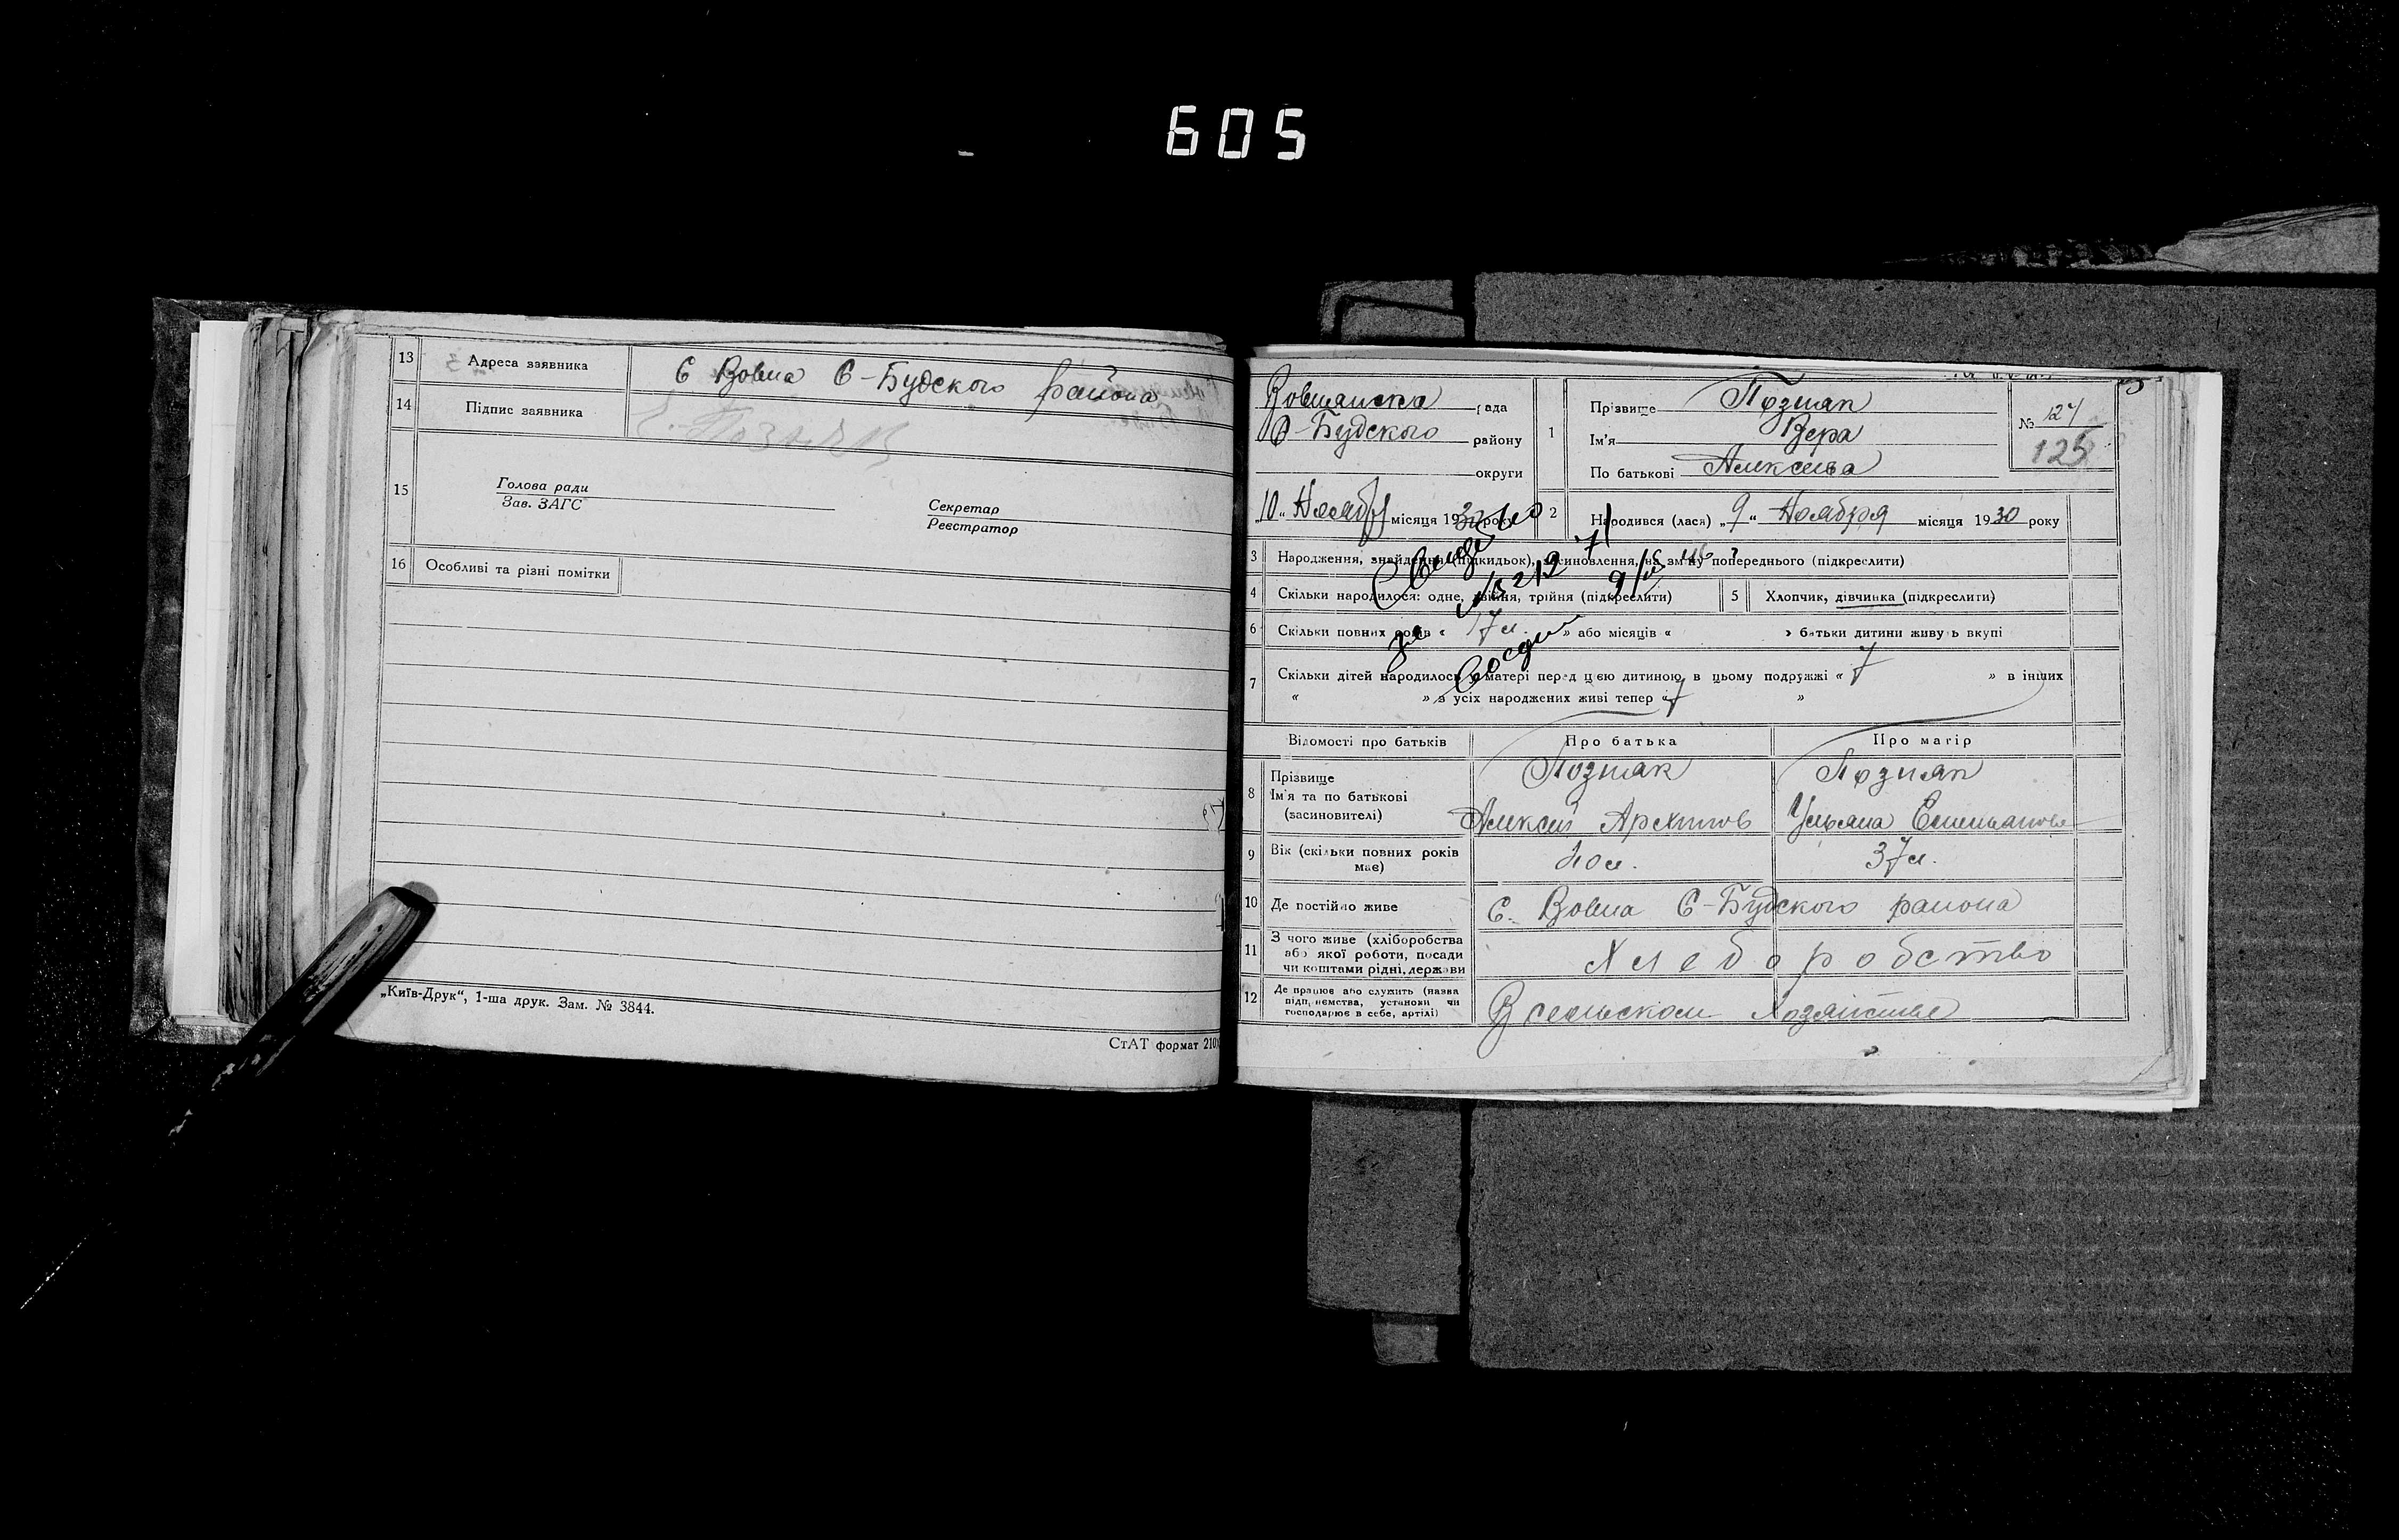 605
13 Адреса заявника С Вовна С-Будского района
14 Підпис заявника Позняк
15 Голова ради
Зав. ЗАГС
Секретар
Реєстратор
16 Особливі та різні помітки
„Київ-Друк“, 1-ша друк. Зам. № 3844.
СтАТ формат 210
рада
С-Будского району
округи
„10“ Ноября місяця 1930 року
1 Прізвище Позняк
Ім'я Вера
По батькові Алексеева
№ 127
125
2 Народився (лася) „9“ Ноября місяця 1930 року
3 Народження, знайдення (підкидьок), засиновлення, на зміну попереднього (підкреслити)
4 Скільки народилося: одне, двійня, трійня (підкреслити)
5 Хлопчик, дівчинка (підкреслити)
6 Скільки повних років « 17 л. » або місяців « » батьки дитини живуть вкупі
7 Скільки дітей народилось у матері перед цією дитиною в цьому подружжі « 7 » в інших
« » з усіх народжених живі тепер « 7 »
Відомості про батьків Про батька Про матір
8 Прізвище
Ім'я та по батькові
(засиновителі)
Позняк
Алексей Архипов
Позняк
Ульяна Емельянова
9 Вік (скільки повних років
має)
40 л. 37 л.
10 Де постійно живе С. Вовна С-Будского района
11 З чого живе (хліборобства
або якої роботи, посади
чи коштами рідні, держави
Хлеборобство
12 Де працює або служить (назва
підприємства, установи чи
господарює в себе, артілі)
В сельском хозяйстве